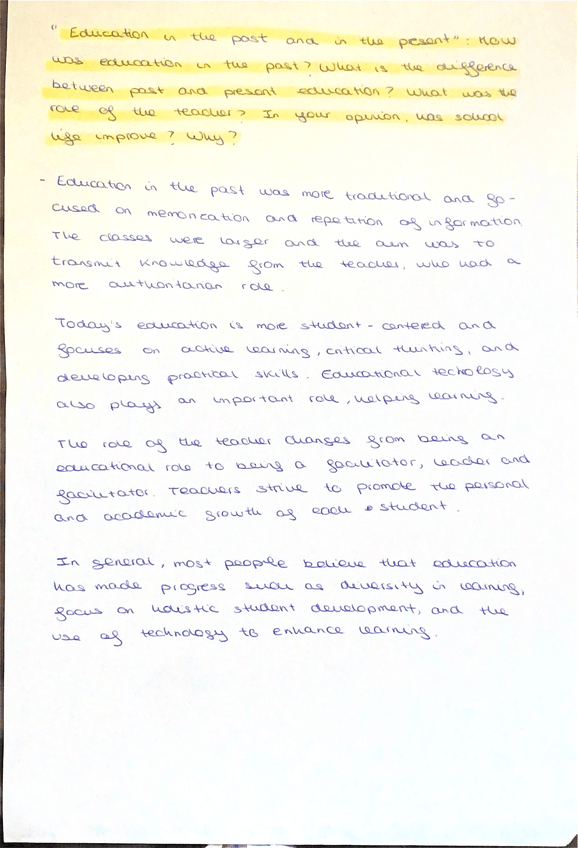 "Education in the past and in the present": How
was education in the past? What is the difference
between past and present education? What was the
role of the teacher? In your opinion, has school
life improve? Why?
- Education in the past was more traditional and fo-
cused on memorization and repetition of information.
The classes were larger and the aim was to
transmit knowledge from the teacher, who had a
more authoritarian role.
Today's education is more student-centered and
focuses on active learning, critical thinking, and
developing practical skills. Educational techology
also plays an important role, helping learning.
The role of the teacher changes from being an
educational role to being a facilitator, leader and
facilitator. Teachers strive to promote the personal
and academic growth of each student.
In general, most people believe that education
has made progress such as diversity in learning,
focus on holistic student development, and the
use of technology to enhance learning.